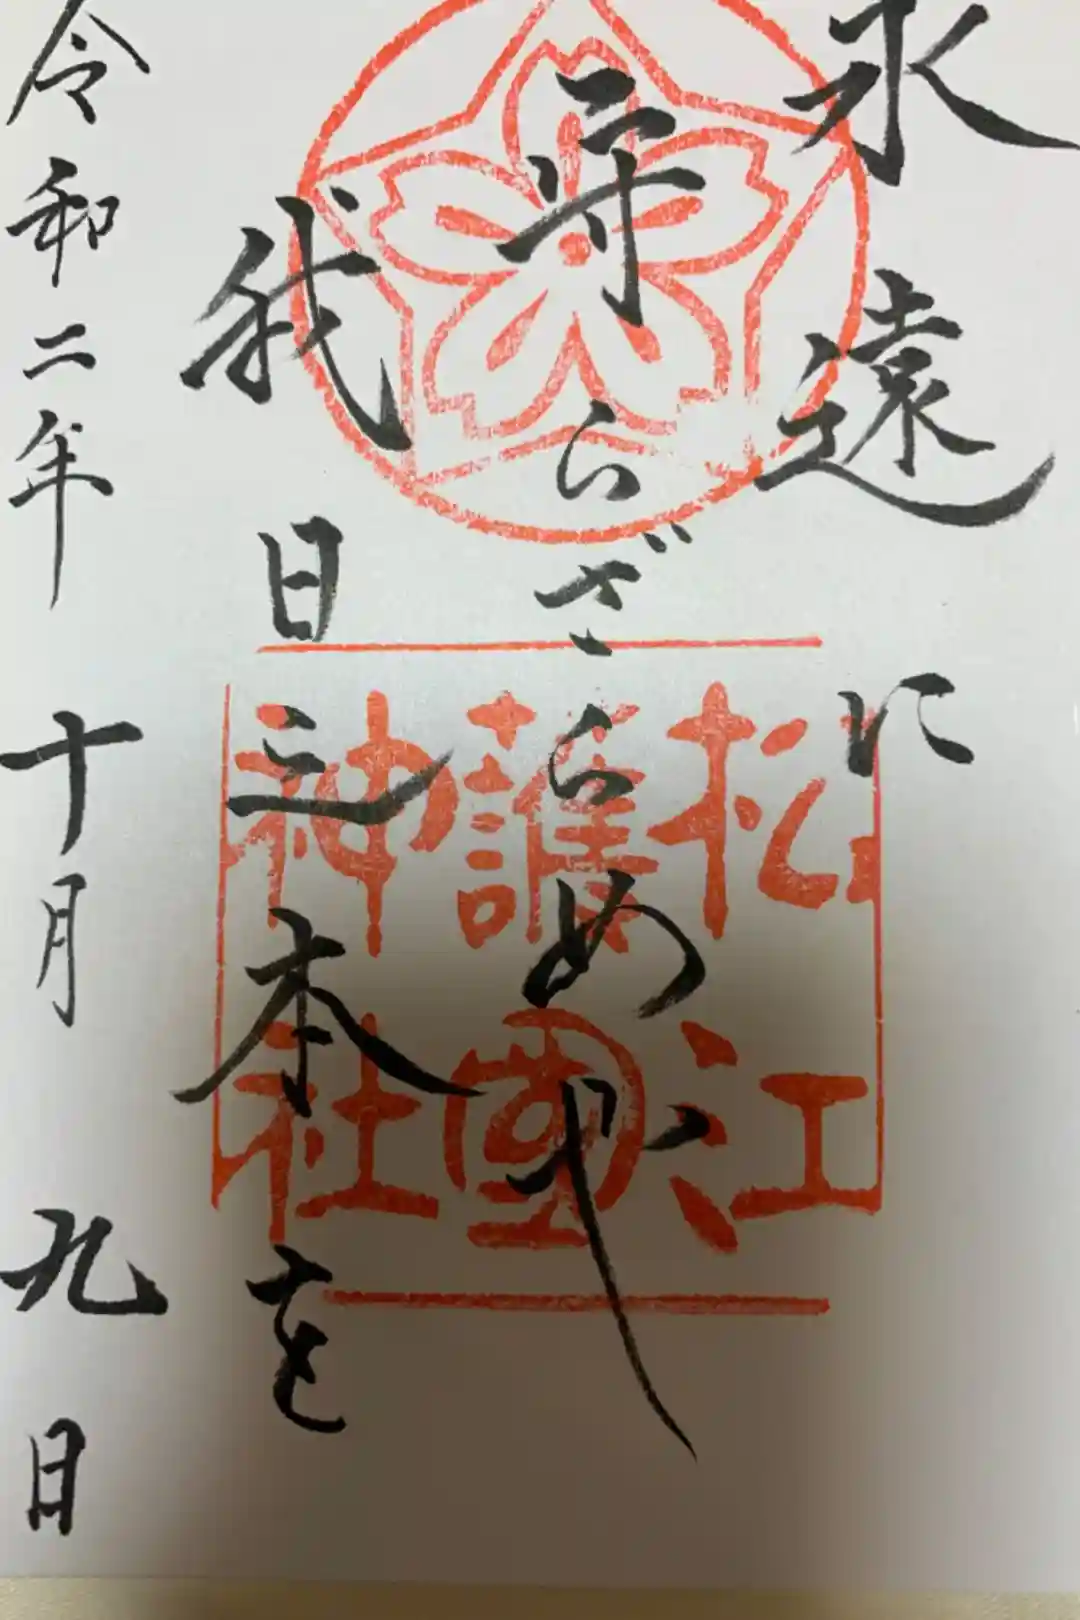 永遠に
守らざらめや
我日之本を
令和二年十月九日
松江
護國
神社